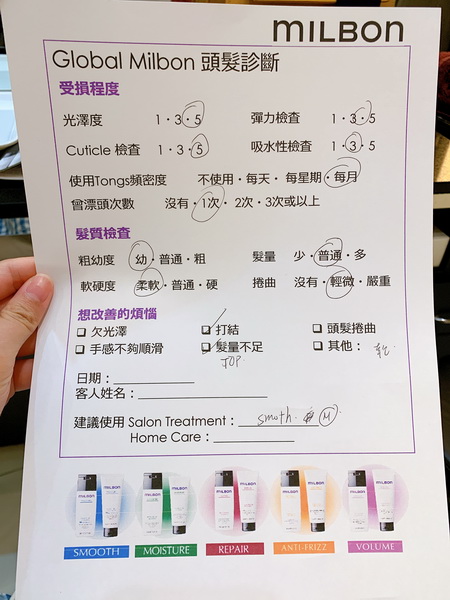 MILBON
Global Milbon 頭髮診斷
受損程度
光澤度 1・3・5 彈力檢查 1・3・5
Cuticle 檢查 1・3・5 吸水性檢查 1・3・5
使用Tongs頻密度 不使用・每天・每星期・每月
曾漂頭次數 沒有・1次・2次・3次或以上
髮質檢查
粗幼度 幼・普通・粗 髮量 少・普通・多
軟硬度 柔軟・普通・硬 捲曲 沒有・輕微・嚴重
想改善的煩惱
欠光澤 打結 頭髮捲曲
手感不夠順滑 髮量不足 其他：乾
TOP
日期：
客人姓名：
建議使用 Salon Treatment： smoth. M
Home Care：
MILBON MILBON MILBON MILBON MILBON
SMOOTH MOISTURE REPAIR ANTI-FRIZZ VOLUME